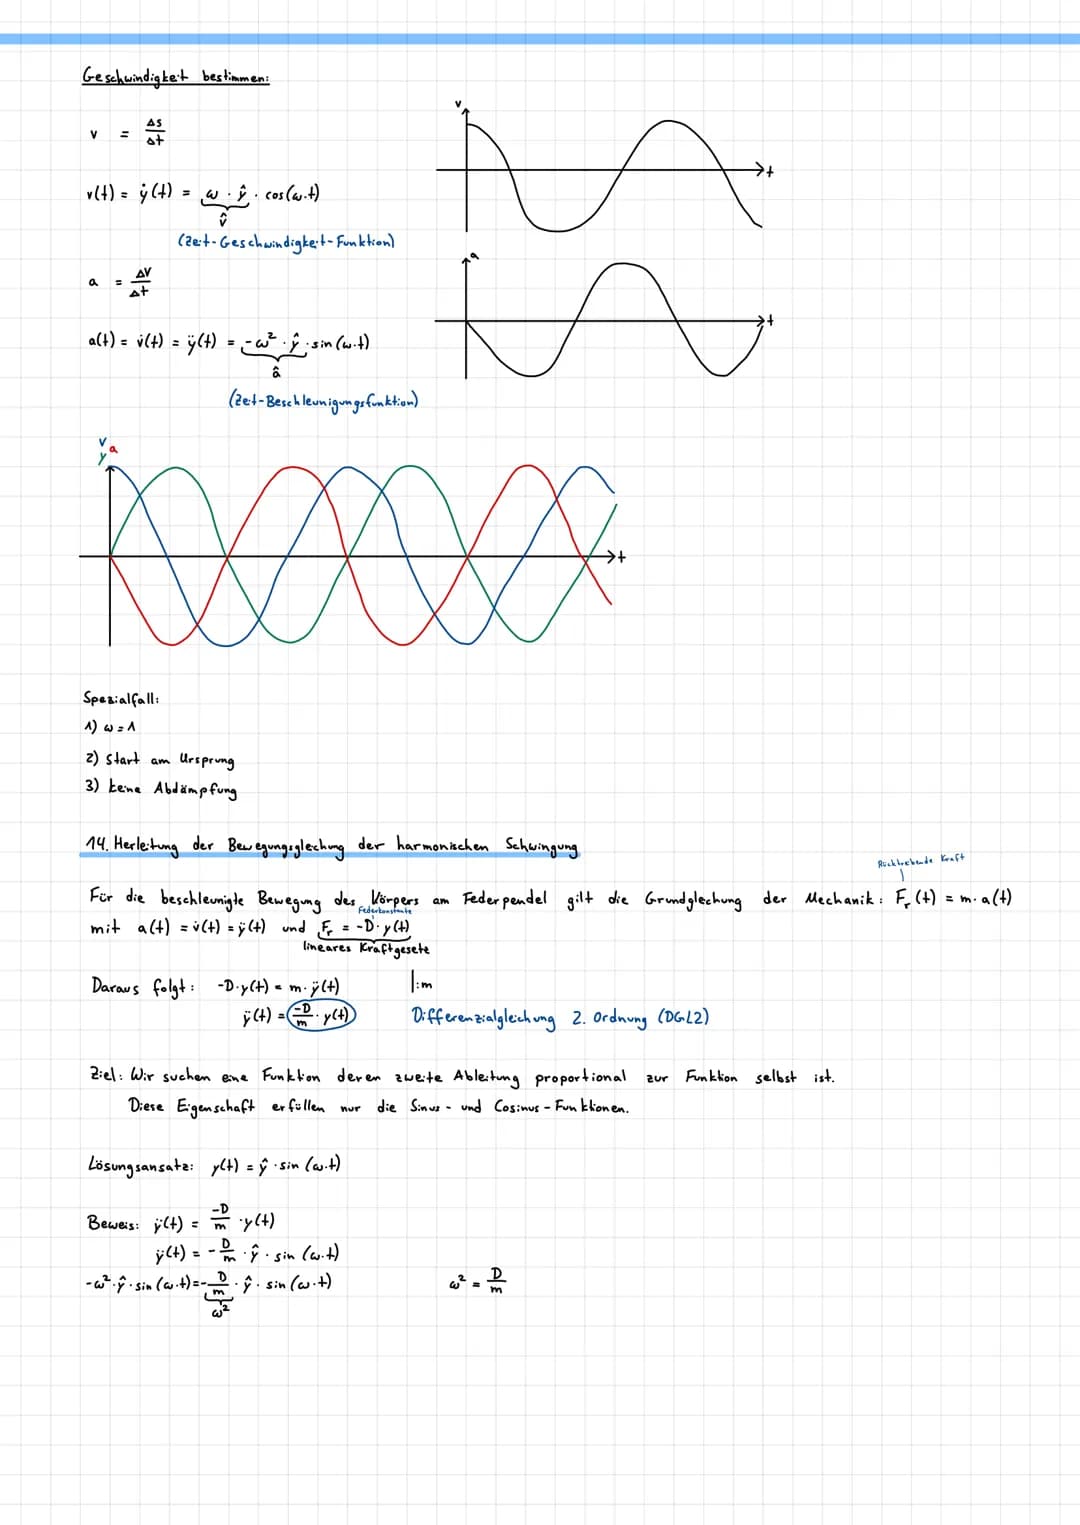 Geschwindigkeit bestimmen:
v = Δs/Δt
v
t
v(t) = ẏ(t) = ω · ŷ · cos(ω·t)
v̂
(Zeit-Geschwindigkeit-Funktion)
a = Δv/Δt
a
t
a(t) = v̇(t) = ÿ(t) = -ω² · ŷ · sin(ω·t)
â
(Zeit-Beschleunigungsfunktion)
v
y a
t
Spezialfall:
1) ω = 1
2) Start am Ursprung
3) keine Abdämpfung
14. Herleitung der Bewegungsgleichung der harmonischen Schwingung
Rücktreibende Kraft
Für die beschleunigte Bewegung des Körpers am Federpendel gilt die Grundgleichung der Mechanik: Fr(t) = m·a(t)
Federkonstante
mit a(t) = v̇(t) = ÿ(t) und Fr = -D·y(t)
lineares Kraftgesetz
Daraus folgt: -D·y(t) = m·ÿ(t) |:m
ÿ(t) = -D/m · y(t) Differenzialgleichung 2. Ordnung (DGL2)
Ziel: Wir suchen eine Funktion deren zweite Ableitung proportional zur Funktion selbst ist.
Diese Eigenschaft erfüllen nur die Sinus- und Cosinus-Funktionen.
Lösungsansatz: y(t) = ŷ · sin(ω·t)
Beweis: ÿ(t) = -D/m · y(t)
ÿ(t) = -D/m · ŷ · sin(ω·t)
-ω²·ŷ·sin(ω·t) = -D/m · ŷ · sin(ω·t) ω² = D/m
ω²